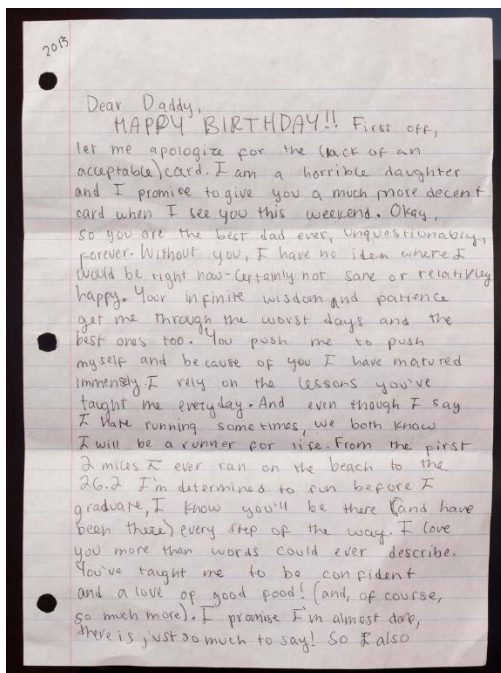 2013
Dear Daddy,
HAPPY BIRTHDAY!! First off,
let me apologize for the (lack of an
acceptable) card. I am a horrible daughter
and I promise to give you a much more decent
card when I see you this weekend. Okay,
so you are the best dad ever, unquestionably,
forever. Without you, I have no idea where I
would be right now-certainly not sane or relativley
happy. Your infinite wisdom and patience
get me through the worst days and the
best ones too. You push me to push
myself and because of you I have matured
immensely. I rely on the lessons you've
taught me everyday. And even though I say
I hate running sometimes, we both know
I will be a runner for life. From the first
2 miles I ever ran on the beach to the
26.2 I'm determined to run before I
graduate, I know you'll be there (and have
been there) every step of the way. I love
you more than words could ever describe.
You've taught me to be confident
and a love of good food! (and, of course,
so much more). I promise I'm almost done,
there is just so much to say! So I also